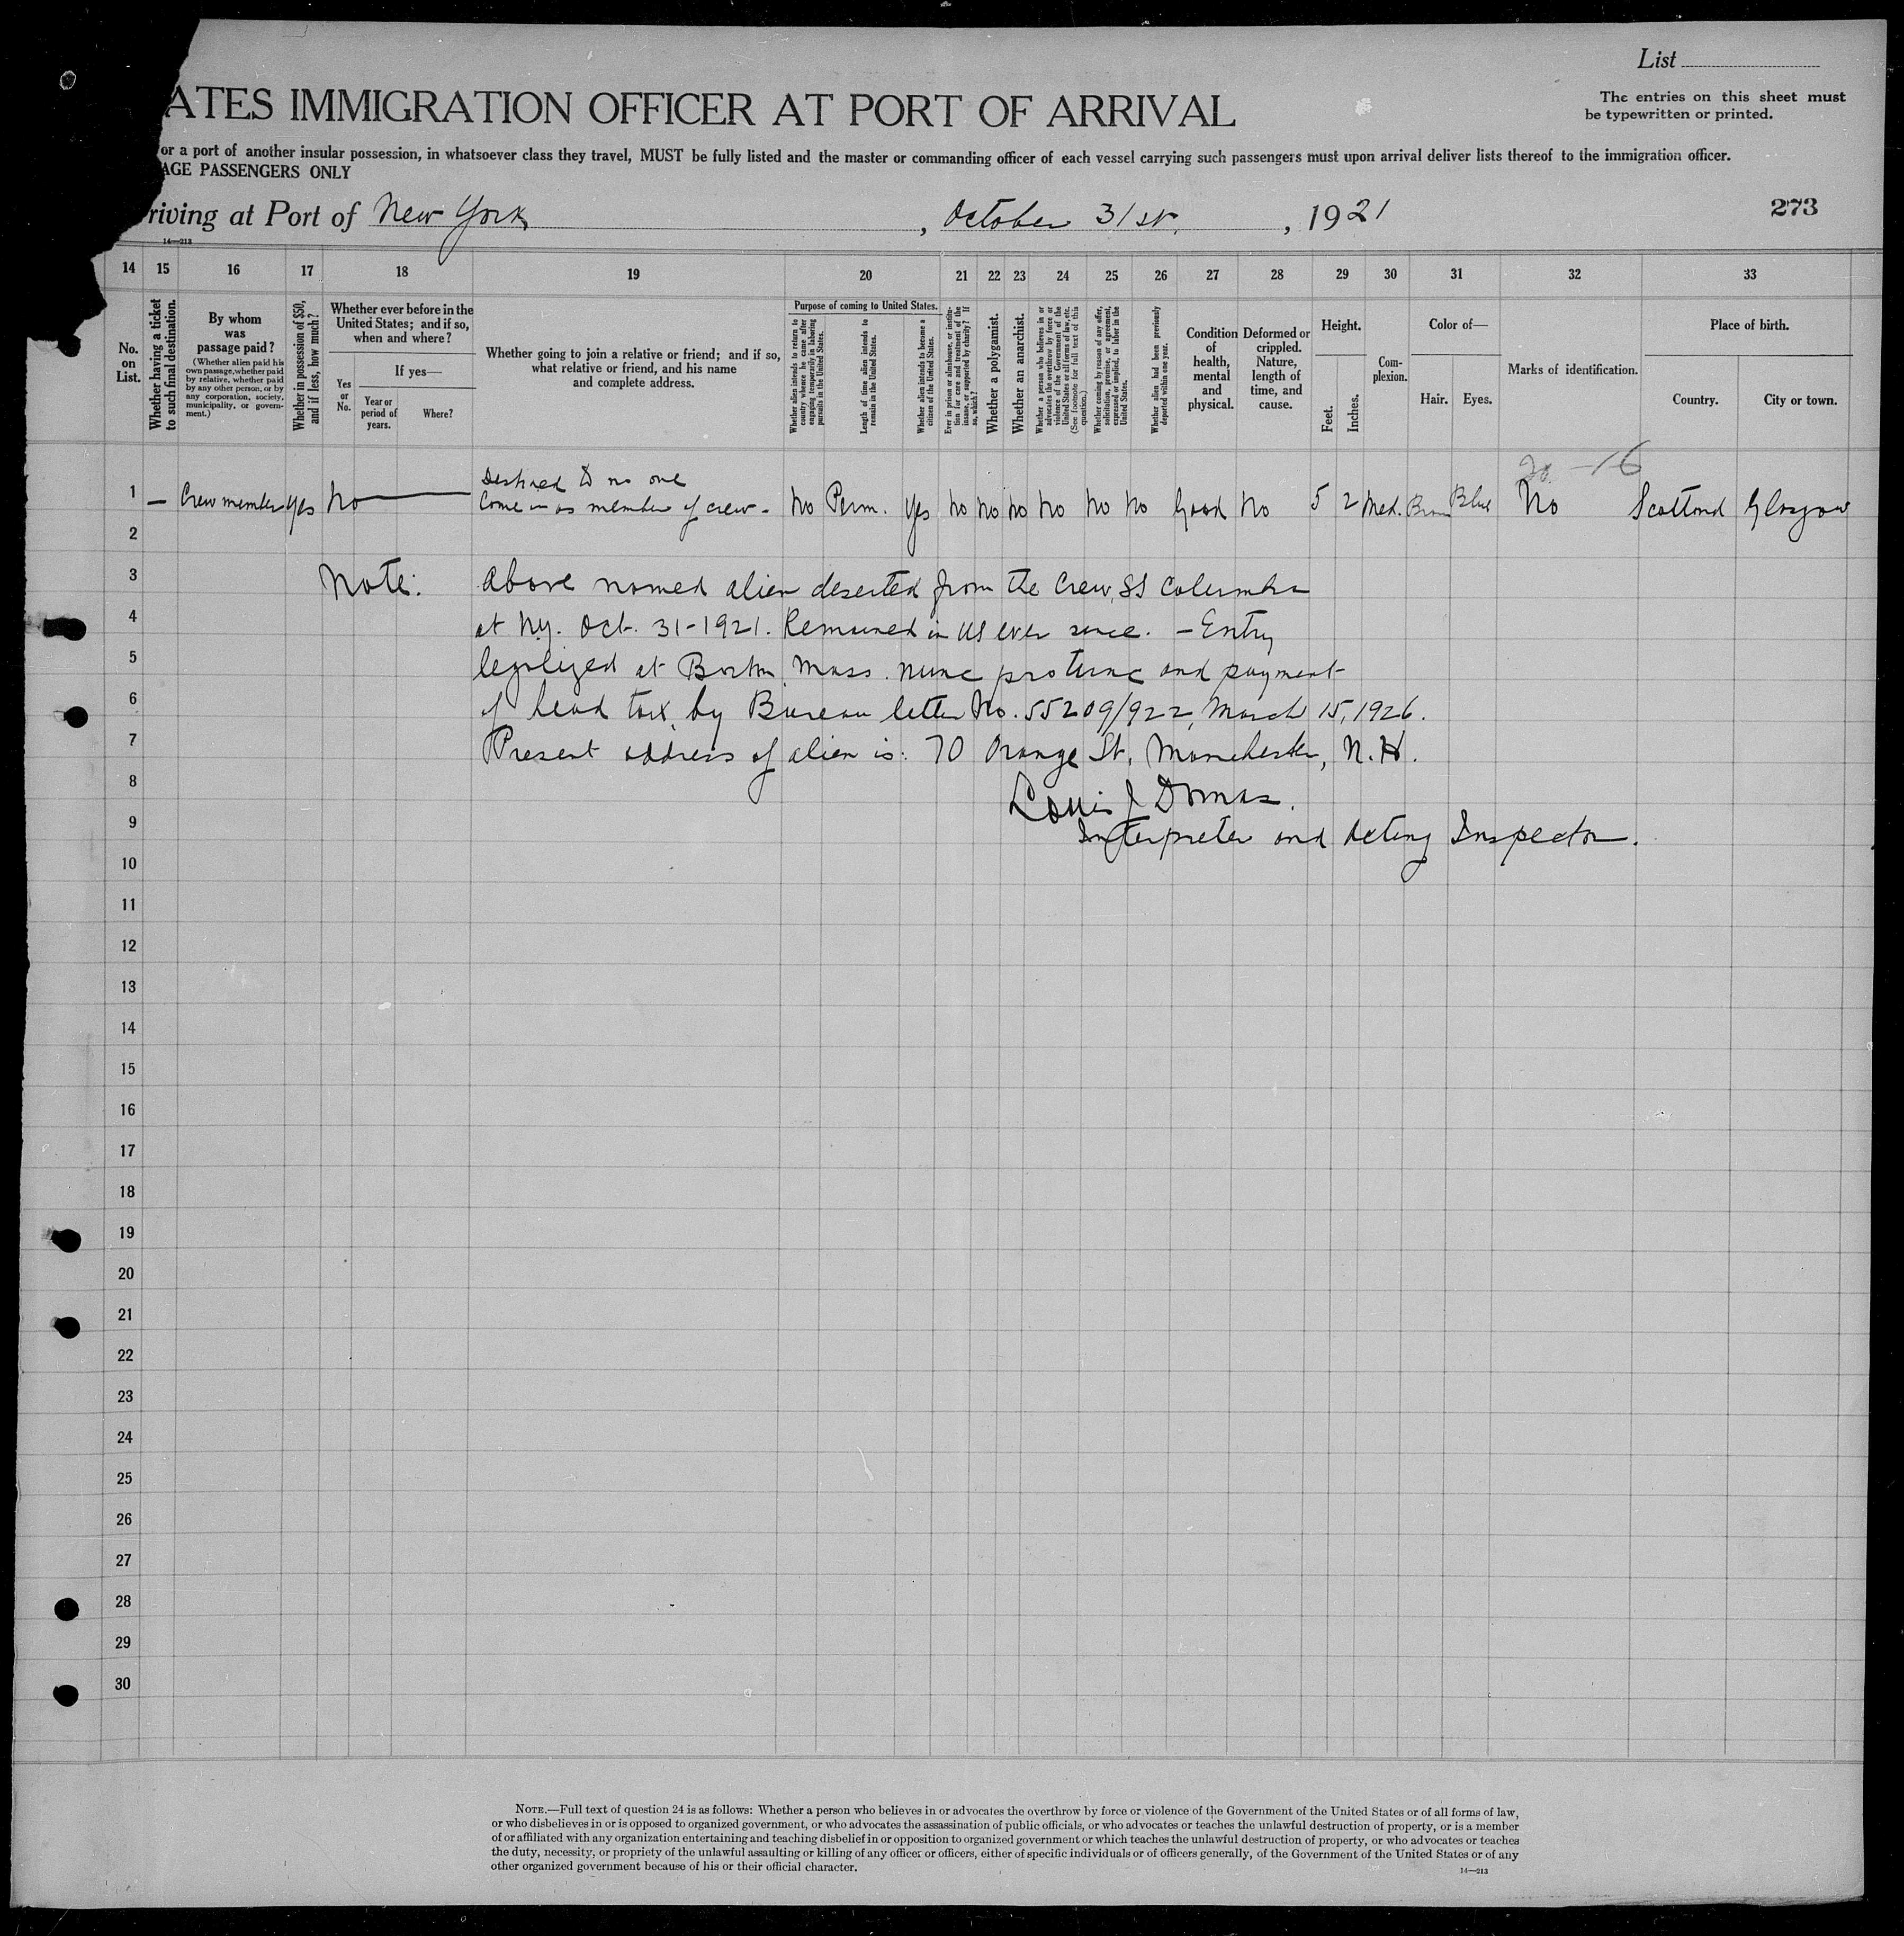 List
The entries on this sheet must
be typewritten or printed.
ATES IMMIGRATION OFFICER AT PORT OF ARRIVAL
or a port of another insular possession, in whatsoever class they travel, MUST be fully listed and the master or commanding officer of each vessel carrying such passengers must upon arrival deliver lists thereof to the immigration officer.
AGE PASSENGERS ONLY
riving at Port of New York, October 31st, 1921
273
14—213
14 15 16 17 18 19 20 21 22 23 24 25 26 27 28 29 30 31 32 33
No. on List.
Whether having a ticket to such final destination.
By whom was passage paid?
(Whether alien paid his own passage, whether paid by relative, whether paid by any other person, or by any corporation, society, municipality, or government.)
Whether in possession of $50, and if less, how much?
Whether ever before in the United States; and if so, when and where?
Yes or No.
If yes—
Year or period of years.
Where?
Whether going to join a relative or friend; and if so, what relative or friend, and his name and complete address.
Purpose of coming to United States.
Whether alien intends to return to country whence he came after engaging temporarily in laboring pursuits in the United States.
Length of time alien intends to remain in the United States.
Whether alien intends to become a citizen of the United States.
Ever in prison or almshouse, or institution for care and treatment of the insane, or supported by charity? If so, which?
Whether a polygamist.
Whether an anarchist.
Whether a person who believes in or advocates the overthrow by force or violence of the Government of the United States or all forms of law, etc. (See footnote for full text of this question.)
Whether coming by reason of any offer, solicitation, promise, or agreement, expressed or implied, to labor in the United States.
Whether alien had been previously deported within one year.
Condition of health, mental and physical.
Deformed or crippled. Nature, length of time, and cause.
Height.
Feet.
Inches.
Complexion.
Color of—
Hair.
Eyes.
Marks of identification.
Place of birth.
Country.
City or town.
Destined to no one
1 — Crew member Yes No Come in as member of crew - No Perm. Yes No No No No No No Good No 5 2 Med. Brown Blue No Scotland Glasgow
2
3 Note: Above named alien deserted from the crew, SS Columbia
4 at N.Y. Oct. 31-1921. Remained in US ever since. - Entry
5 legalized at Boston, Mass. nunc pro tunc and payment
6 of head tax, by Bureau letter No. 55209/922, March 15, 1926.
7 Present address of alien is: 70 Orange St, Manchester, N.H.
8 Louis J
9 Interpreter and Acting Inspector.
10
11
12
13
14
15
16
17
18
19
20
21
22
23
24
25
26
27
28
29
30
NOTE.—Full text of question 24 is as follows: Whether a person who believes in or advocates the overthrow by force or violence of the Government of the United States or of all forms of law,
or who disbelieves in or is opposed to organized government, or who advocates the assassination of public officials, or who advocates or teaches the unlawful destruction of property, or is a member
of or affiliated with any organization entertaining and teaching disbelief in or opposition to organized government or which teaches the unlawful destruction of property, or who advocates or teaches
the duty, necessity, or propriety of the unlawful assaulting or killing of any officer or officers, either of specific individuals or of officers generally, of the Government of the United States or of any
other organized government because of his or their official character.
14—213